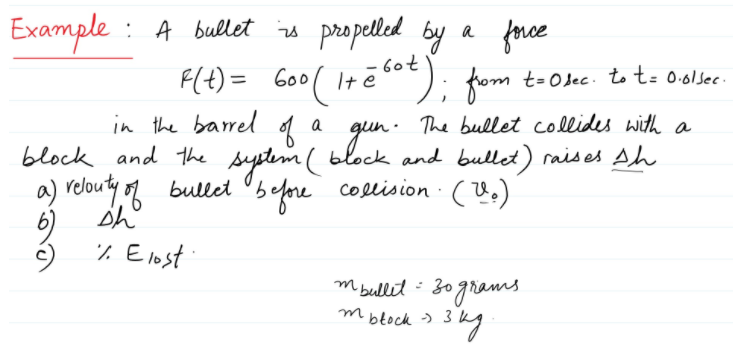 Example : A bullet is propelled by a force
F(t) = 600 ( 1 + e^-60t ) ; from t=0sec. to t= 0.01sec.
in the barrel of a gun. The bullet collides with a
block and the system ( block and bullet ) raises Δh
a) velouty of bullet before collision. ( v₀ )
b) Δh
c) % E lost.
m bullet = 30 grams
m block → 3 kg.